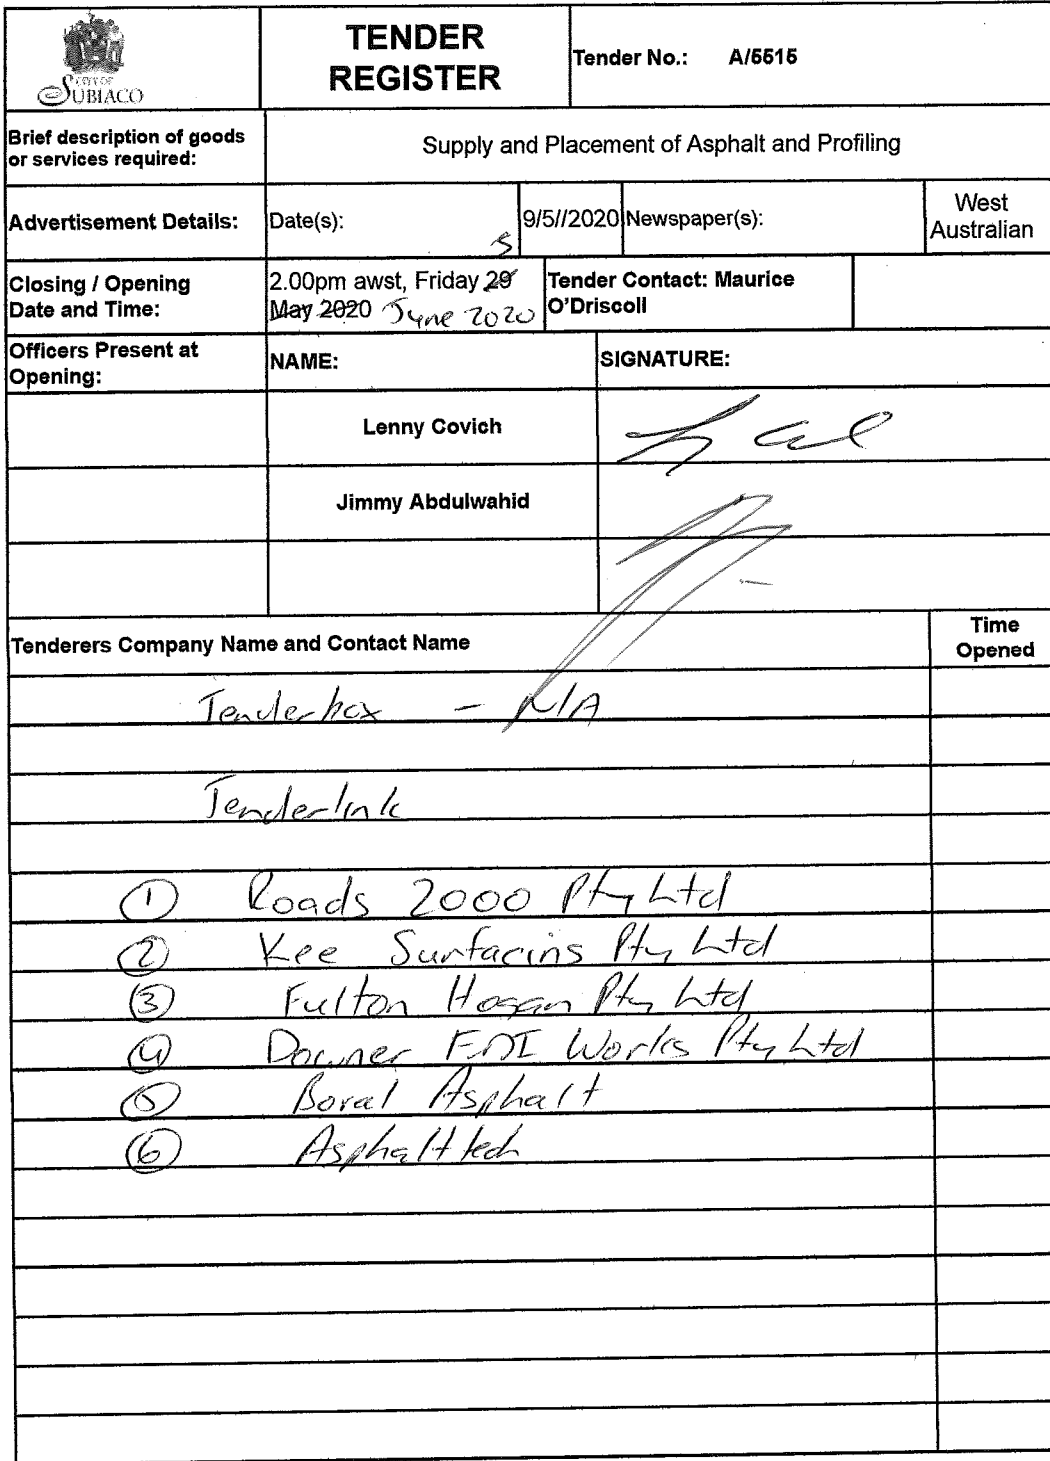 CITY OF
SUBIACO
TENDER
REGISTER
Tender No.: A/5515
Brief description of goods
or services required:
Supply and Placement of Asphalt and Profiling
Advertisement Details:
Date(s):
9/5//2020
Newspaper(s):
West
Australian
Closing / Opening
Date and Time:
5
2.00pm awst, Friday 29
May 2020 June 2020
Tender Contact: Maurice
O'Driscoll
Officers Present at
Opening:
NAME:
SIGNATURE:
Lenny Covich
Jimmy Abdulwahid
Tenderers Company Name and Contact Name
Time
Opened
Tenderbox - N/A
Tenderlink
1 Roads 2000 Pty Ltd
2 Kee Surfacing Pty Ltd
3 Fulton Hogan Pty Ltd
4 Downer EDI Works Pty Ltd
5 Boral Asphalt
6 Asphalttech